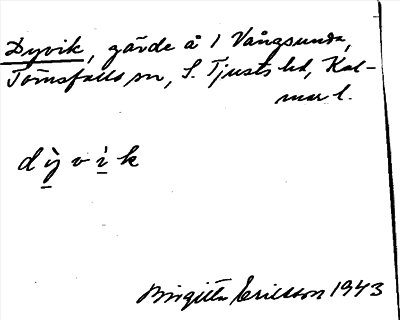 Dyvik, gärde å 1 Vångsunda,
Törnsfalls sn, S. Tjusts hd, Kal-
mar l.
dỳ̠ v i̠̇ k
Birgitta Ericsson 1943